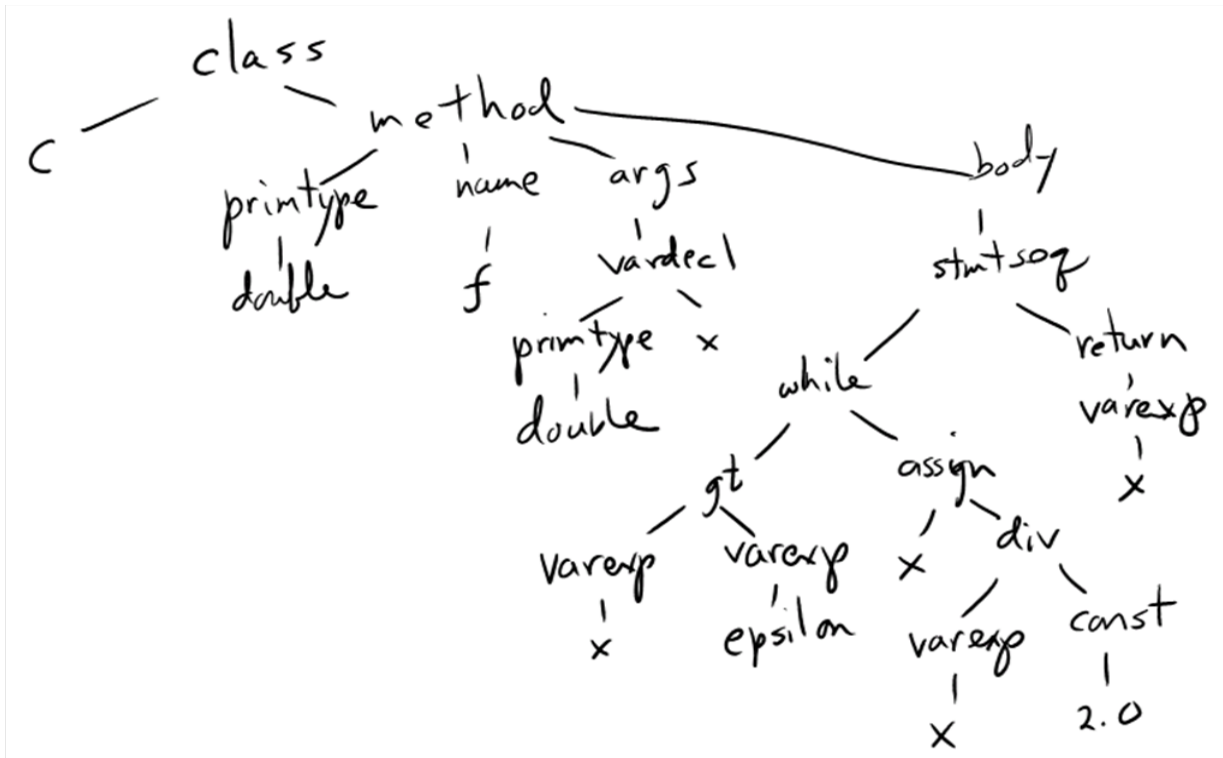 class
C method
primtype name args body
double f vardecl stmtseq
primtype x return
double while varexp
gt assign x
varexp varexp x div
x epsilon varexp const
x 2.0